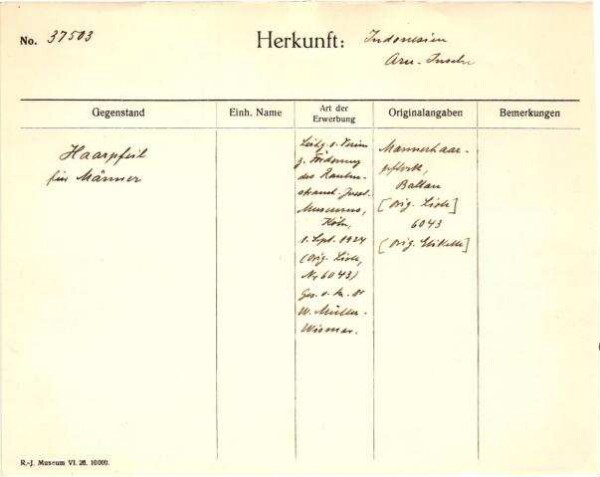 No. 37503
Herkunft: Indonesien
Aru-Inseln
Gegenstand
Einh. Name
Art der Erwerbung
Originalangaben
Bemerkungen
Haarpfeil
für Männer
v. Verein
z. Förderung
des Rauten-
strauch-Joest-
Museums,
Köln,
1. Sept. 1927
(Orig. Liste,
Nr 6043)
Ges. v. Dr
W. Müller-
Wismar.
Männerhaar-
pfeil,
[Orig. Liste]
6043
[Orig. Etikette]
R.-J. Museum VI. 26. 10000.